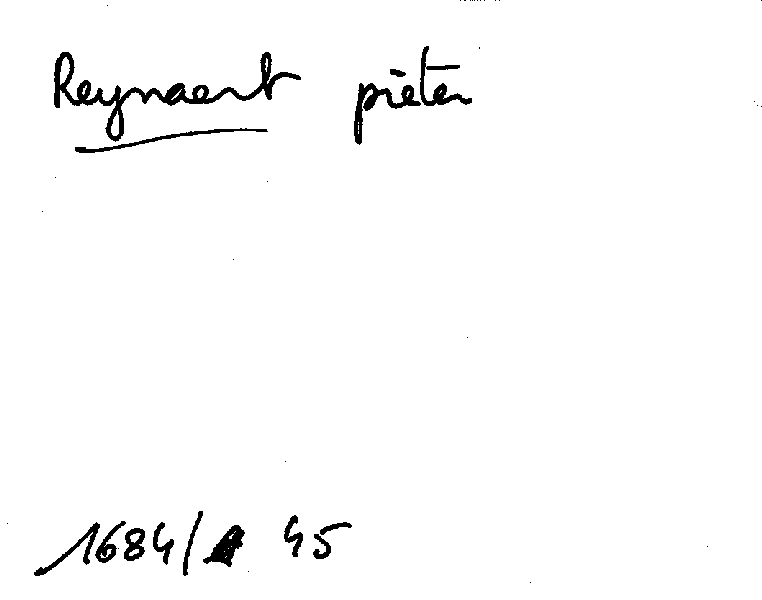 Reynaert pieter
1684/ 45